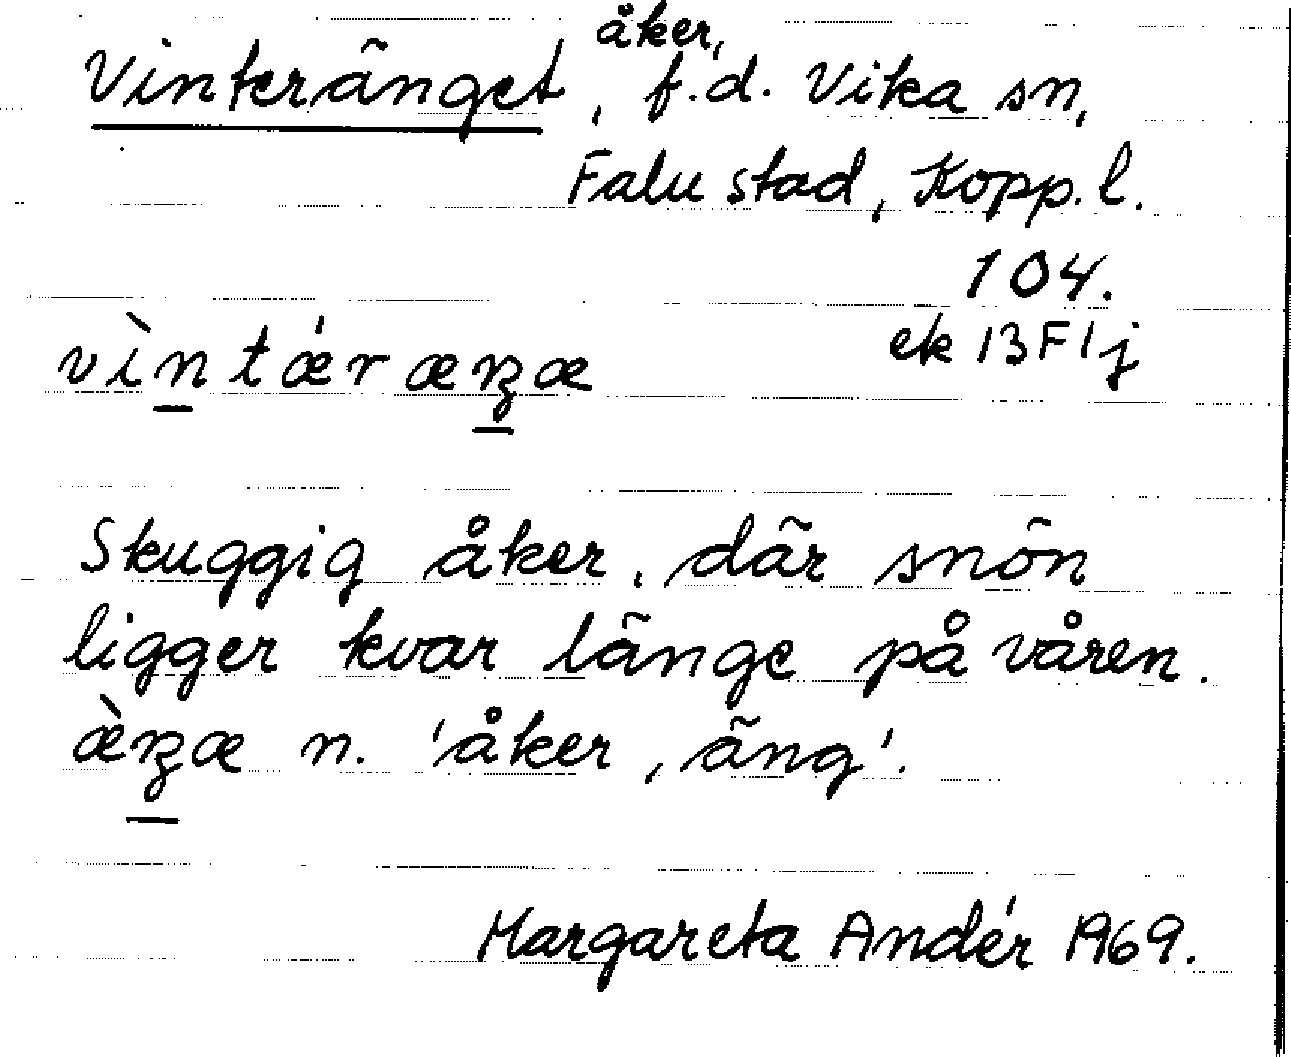 Vinteränget, åker, f.d. Vika sn,
Falu stad, Kopp. l.
104.
ek 13F1j
vìntǽræŋæ
Skuggig åker, där snön
ligger kvar länge på våren.
æ̀ŋæ n. 'åker, äng'.
Margareta Andér 1969.